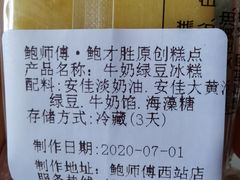 鲍师傅·鲍才胜原创糕点
产品名称:牛奶绿豆冰糕
配料:安佳淡奶油.安佳大黄
绿豆.牛奶馅.海藻糖
存储方式:冷藏(3天)
制作日期:2020-07-01
制作地址:鲍师傅西站店
服务热线